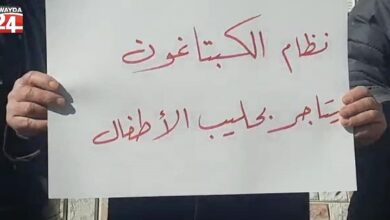 WAYDA
24
نظام الكبتاغون
يتاجر بحليب الأطفال